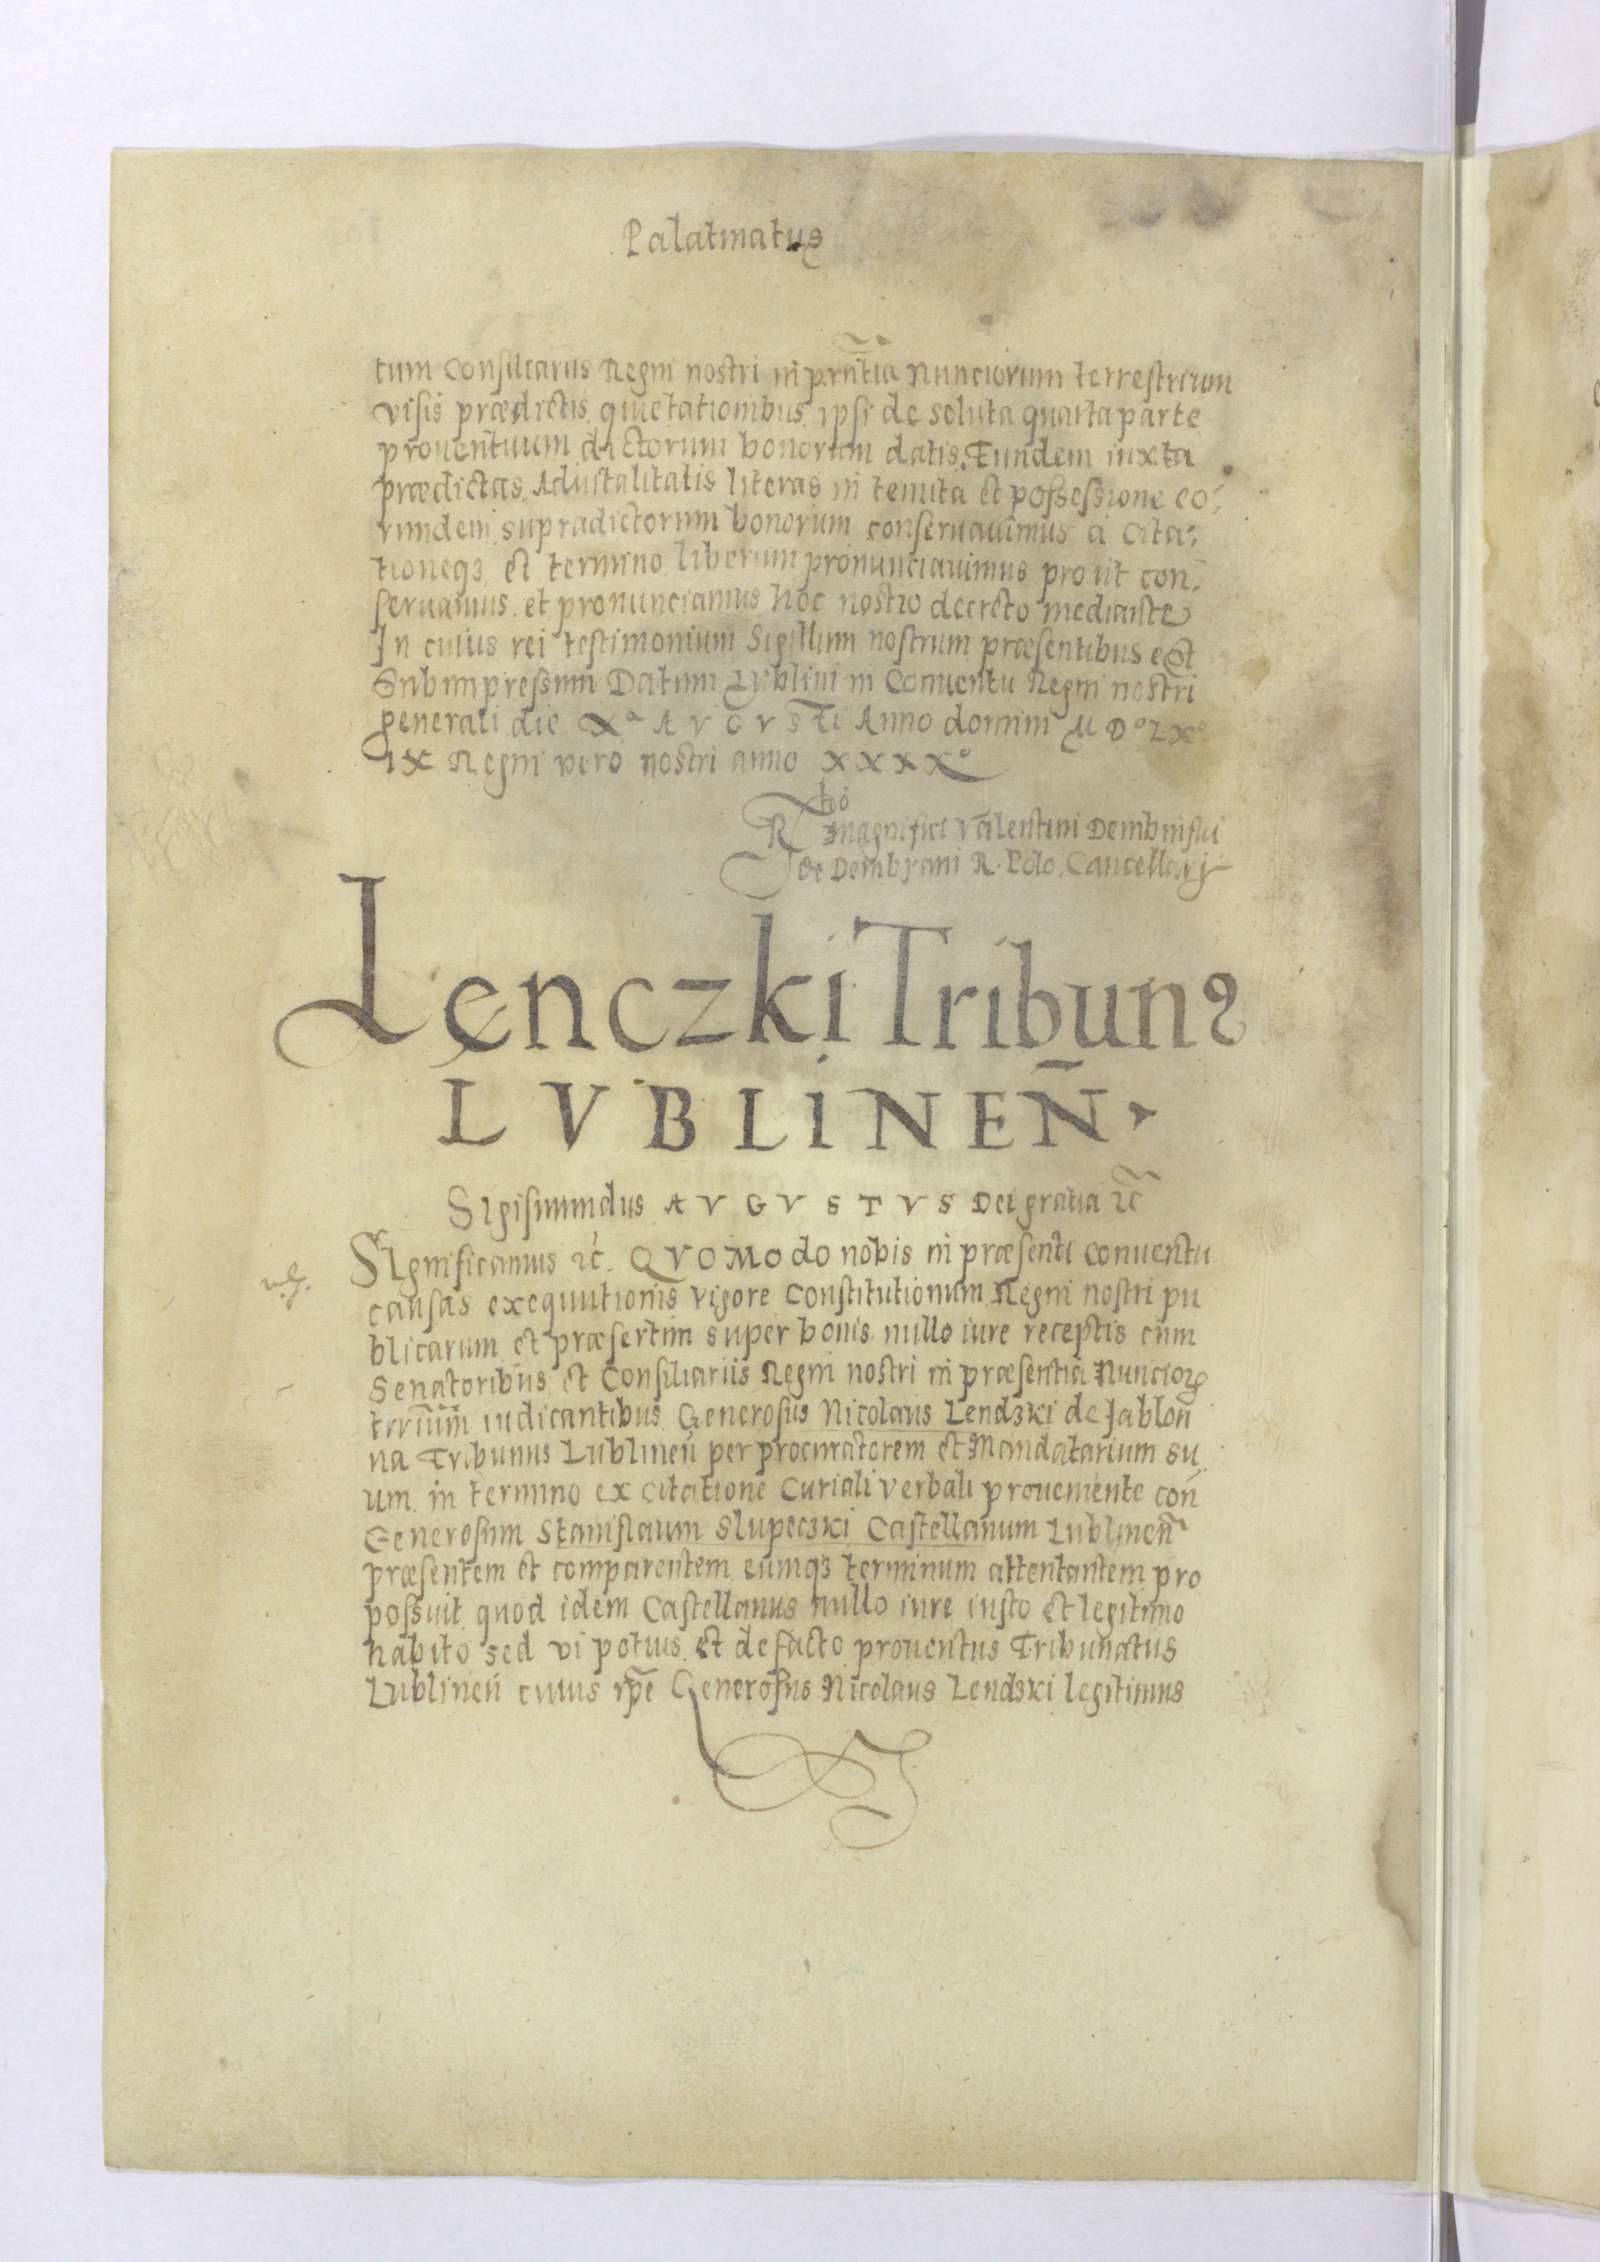 Palatinatus
tum Consiliariis Regni nostri in prn̄tia Nunciorum terrestrium
visis prædictis quietationibus ipsi de soluta quarta parte
prouentuum dictorum bonorum datis. Eundem iuxta
prædictas Aduitalitatis literas in tenuta et possessione eo-
rundem supradictorum bonorum conseruauimus a Cita-
tioneqȝ et termino liberum pronunciauimus prout con-
seruamus et pronunciamus hoc nostro decreto mediante
In cuius rei testimonium Sigillum nostrum præsentibus est
Subimpressum Datum Lublini in Conuentu Regni nostri
generali die Xᵃ AVGVSTi Anno domini M D° LX°
IX Regni vero nostri anno XXXX°
Rtio Magnifici Valentini Dembinskii
de Dembyani R. Polo. Cancellarij
Lęnczki Tribunꝰ
LVBLINEN̄
Sigismundus AVGVSTVS Dei gratia ꝛc̄
Significamus ꝛc. QVOMOdo nobis in præsenti Conuentu
causas exequutionis vigore Constitutionum Regni nostri pu
blicarum et præsertim super bonis nullo iure receptis cum
Senatoribus et Consiliariis Regni nostri in præsentia Nuncioꝝ
trrīum iudicantibus Generosus Nicolaus Lendȝki de Jablon
na Tribunus Lublinen̄ per procuratorem et Mandatarium su
um in termino ex Citatione Curiali verbali proueniente con̄
Generosum Stanislaum Slupeczki Castellanum Lublinen̄
præsentem et comparentem eumqȝ terminum attentantem pro
possuit quod idem Castellanus nullo iure iusto et legitimo
habito sed vi potius et defacto prouentus Tribunatus
Lublinen̄ cuius ip̄e Generosus Nicolaus Lendȝki legitimus